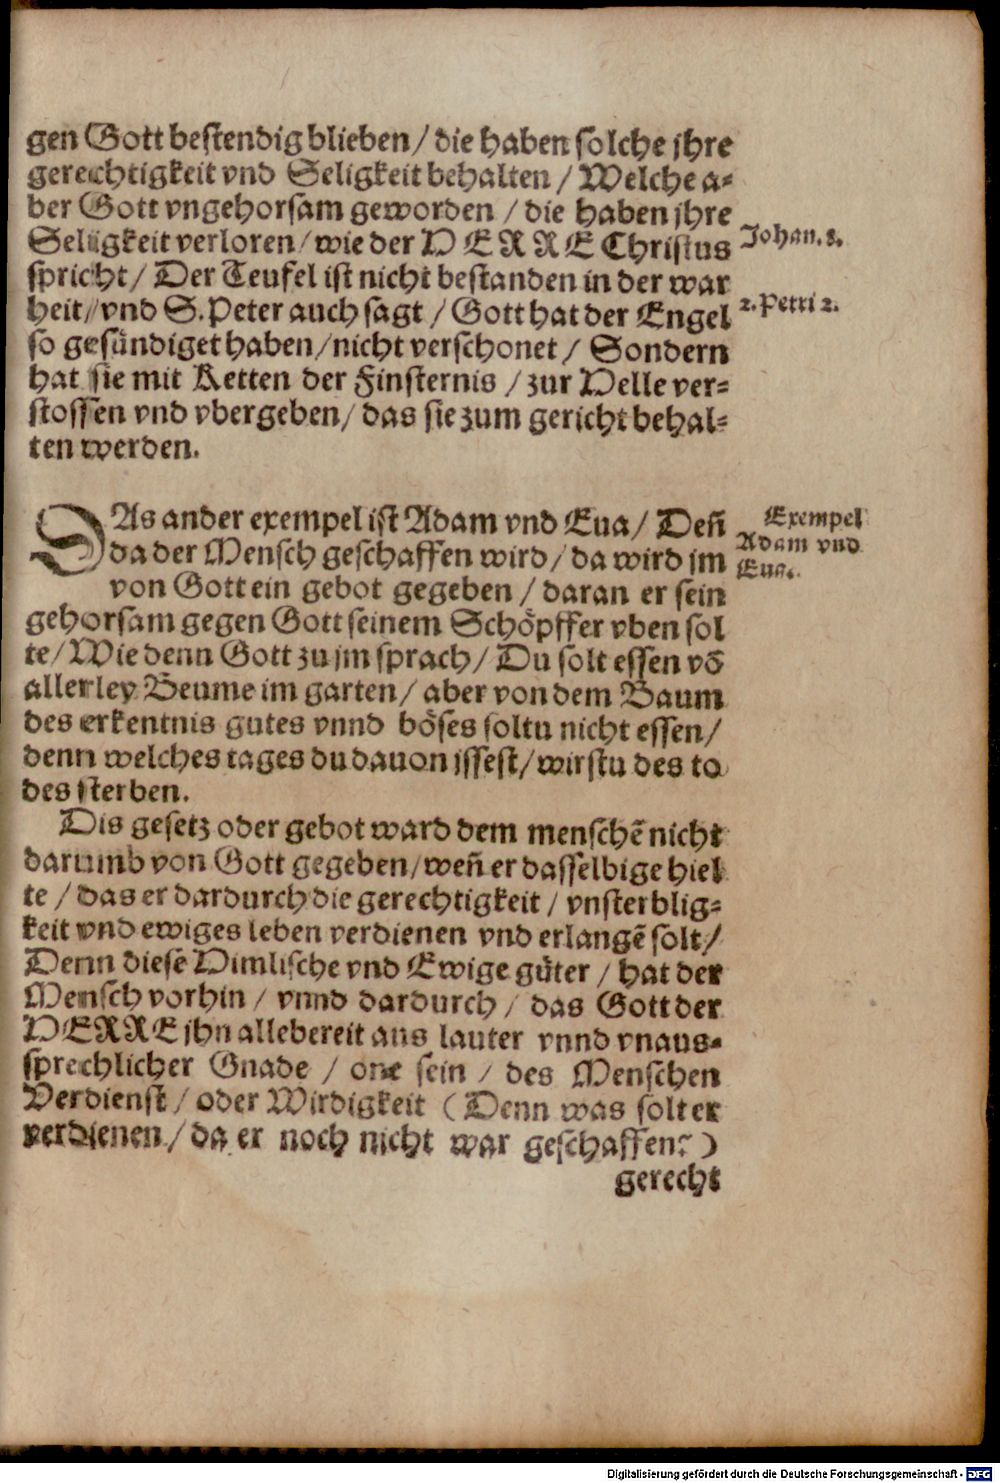 gen Gott bestendig blieben / die haben solche jhre
gerechtigkeit vnd Seligkeit behalten / Welche a-
ber Gott vngehorsam geworden / die haben jhre
Seligkeit verloren / wie der HERRE Christus
Johan. 8.
spricht / Der Teufel ist nicht bestanden in der war
heit / vnd S. Peter auch sagt / Gott hat der Engel
2. Petri 2.
so gesündiget haben / nicht verschonet / Sondern
hat sie mit Ketten der Finsternis / zur Helle ver-
stossen vnd vbergeben / das sie zum gericht behal-
ten werden.
DAs ander exempel ist Adam vnd Eua / Deñ
da der Mensch geschaffen wird / da wird jm
von Gott ein gebot gegeben / daran er sein
Exempel
Adam vnd
Eua.
gehorsam gegen Gott seinem Schöpffer vben sol
te / Wie denn Gott zu jm sprach / Du solt essen võ
allerley Beume im garten / aber von dem Baum
des erkentnis gutes vnnd böses soltu nicht essen /
denn welches tages du dauon jssest / wirstu des to
des sterben.
Dis gesetz oder gebot ward dem menschẽ nicht
darumb von Gott gegeben / weñ er dasselbige hiel
te / das er dardurch die gerechtigkeit / vnsterblig-
keit vnd ewiges leben verdienen vnd erlangẽ solt /
Denn diese Himlische vnd Ewige güter / hat der
Mensch vorhin / vnnd dardurch / das Gott der
HERRE jhn allebereit aus lauter vnnd vnaus-
sprechlicher Gnade / one sein / des Menschen
Verdienst / oder Wirdigkeit (Denn was solt er
verdienen / da er noch nicht war geschaffen?)
gerecht
Digitalisierung gefördert durch die Deutsche Forschungsgemeinschaft - DFG